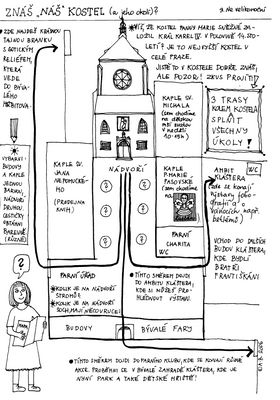 ZNÁŠ „NÁŠ" KOSTEL (a jeho okolí)?
9. Ne velikonoční
ZDE NAJDEŠ KRÁSNOU
TAJNOU BRANKU
S GOTICKÝM
RELIÉFEM,
KTERÁ
VEDE
DO BÝ-
VALÉHO
VÍŠ, ŽE KOSTEL PANNY MARIE SNĚŽNÉ ZA-
LOŽIL KRÁL KAREL IV. V POLOVINĚ 14. STO-
LETÍ? JE TO NEJVYŠŠÍ KOSTEL V
CELÉ PRAZE.
JISTĚ TO V KOSTELE DOBŘE ZNÁŠ,
ALE POZOR! ZKUS PROJÍT
3 TRASY
KOLEM KOSTELA
SPLNIT
VŠECHNY
ÚKOLY!
KAPLE SV.
MICHALA
(sem chodíme
na dětskou
mši svatou
v neděli
10.15h)
VYBARVI
BUDOVY
A KAPLE
JEDNOU
BARVOU,
NÁDVOŘÍ
DRUHOU,
CESTIČKY
BAREVNĚ
(RŮZNĚ)
KAPLE SV.
JANA
NEPOMUCKÉ-
HO
(PRODEJNA
KNIH)
NÁDVOŘÍ
KAPLE
P. MARIE
PASOVSKÉ
(sem chodíme
FARNÍ
CHARITA
WC
AMBIT
KLÁŠTERA
(zde se konají
výstavy foto-
grafií a o
Vánocích např.
betlémů)
VCHOD PRO DALŠÍCH
BUDOV KLÁŠTERA,
KDE BYDLÍ
BRATŘI
FRANTIŠKÁNI
FARNÍ ÚŘAD
KOLIK JE NA NÁDVOŘÍ
STROMŮ?
KOLIK JE NA NÁDVOŘÍ
SOCH, MAJÍ NĚCO V RUCE?
TÍMTO SMĚREM DOJDI
DO AMBITU KLÁŠTERA,
KDE SI MŮŽEŠ PRO-
HLÉDNOUT VÝSTAVU.
BUDOVY
BÝVALÉ FARY
TÍMTO SMĚREM DOJDI DO FARNÍHO KLUBU, KDE SE KONAJÍ RŮZNÉ
AKCE. PROBÍHÁME CI V BÝVALÉ ZAHRADĚ KLÁŠTERA, KDE JE
NYNÍ PARK A TAKÉ DĚTSKÉ HŘIŠTĚ!